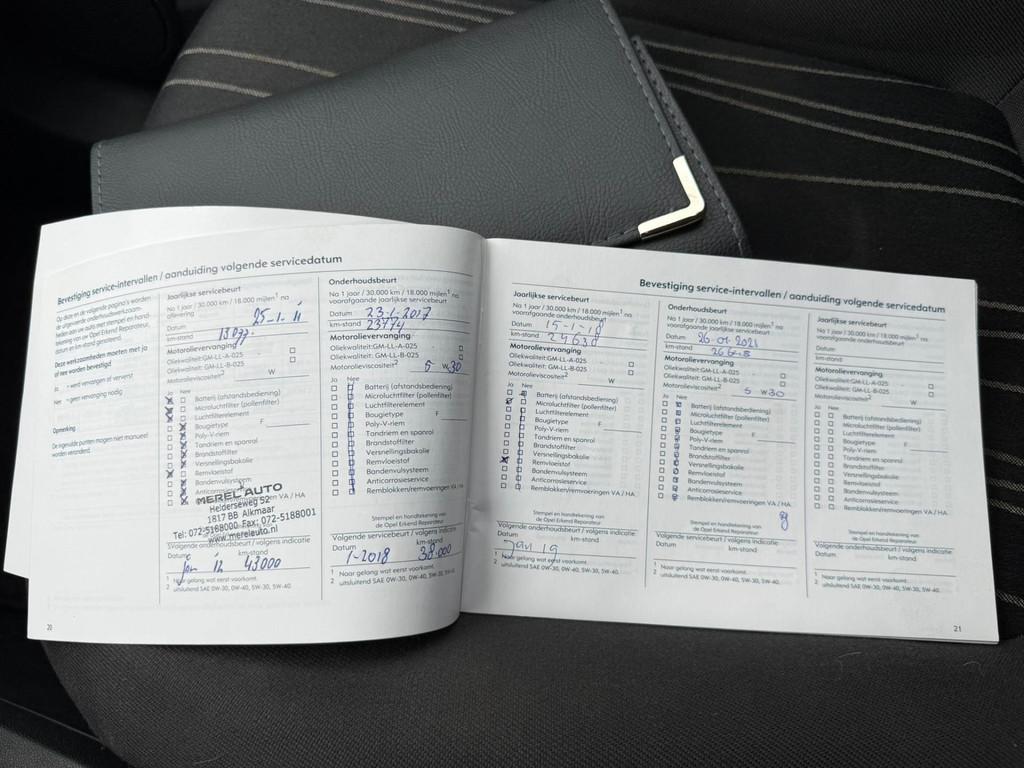 Bevestiging service-intervallen / aanduiding volgende servicedatum
Op deze en de volgende pagina's worden
de uitgevoerde onderhoudswerkzaam-
heden aan uw auto met stempel en hand-
tekening van uw Opel Erkend Reparateur,
datum en km-stand genoteerd.
Deze werkzaamheden moeten met ja
of nee worden bevestigd:
Ja - werd vervangen of ververst
Nee - geen vervanging nodig
Opmerking
De ingevulde punten mogen niet manueel
worden veranderd.
Jaarlijkse servicebeurt
Na 1 jaar / 30.000 km / 18.000 mijlen¹ na
aflevering
Datum 25-1-11
km-stand
Motorolievervanging
Oliekwaliteit: GM-LL-A-025
Oliekwaliteit: GM-LL-B-025
Motorolieviscositeit² W
Ja Nee
Batterij (afstandsbediening)
Microluchtfilter (pollenfilter)
Luchtfilterelement
Bougietype F
Poly-V-riem
Tandriem en spanrol
Brandstoffilter
Versnellingsbakolie
Remvloeistof
Bandenvulsysteem
VA / HA
MEREL AUTO
Helderseweg 52
1817 BB Alkmaar
Tel: 072-5188000 Fax: 072-5188001
www.merelauto.nl
Volgende onderhoudsbeurt / volgens indicatie
Datum km-stand
43000
1 Naar gelang wat eerst voorkomt.
2 uitsluitend SAE 0W-30, 0W-40, 5W-30, 5W-40.
20
Onderhoudsbeurt
Na 1 jaar / 30.000 km / 18.000 mijlen¹ na
voorafgaande jaarlijkse servicebeurt
Datum 23-1-2017
km-stand 23774
Motorolievervanging
Oliekwaliteit: GM-LL-A-025
Oliekwaliteit: GM-LL-B-025
Motorolieviscositeit² 5 W 30
Ja Nee
Batterij (afstandsbediening)
Microluchtfilter (pollenfilter)
Luchtfilterelement
Bougietype F
Poly-V-riem
Tandriem en spanrol
Brandstoffilter
Versnellingsbakolie
Remvloeistof
Bandenvulsysteem
Anticorrosieservice
Remblokken/remvoeringen VA / HA
Stempel en handtekening van
de Opel Erkend Reparateur
Volgende servicebeurt / volgens indicatie
Datum km-stand
1-2018 38.000
1 Naar gelang wat eerst voorkomt.
2 uitsluitend SAE 0W-30, 0W-40, 5W-30, 5W-40.
Bevestiging service-intervallen / aanduiding volgende servicedatum
Jaarlijkse servicebeurt
Na 1 jaar / 30.000 km / 18.000 mijlen¹ na
voorafgaande onderhoudsbeurt
Datum 15-1-18
km-stand 24630
Motorolievervanging
Oliekwaliteit: GM-LL-A-025
Oliekwaliteit: GM-LL-B-025
Motorolieviscositeit² W
Ja Nee
Batterij (afstandsbediening)
Microluchtfilter (pollenfilter)
Luchtfilterelement
Bougietype F
Poly-V-riem
Tandriem en spanrol
Brandstoffilter
Versnellingsbakolie
Remvloeistof
Bandenvulsysteem
Anticorrosieservice
Remblokken/remvoeringen VA / HA
Stempel en handtekening van
de Opel Erkend Reparateur
Volgende onderhoudsbeurt / volgens indicatie
Datum km-stand
Jan 19
1 Naar gelang wat eerst voorkomt.
2 uitsluitend SAE 0W-30, 0W-40, 5W-30, 5W-40.
Onderhoudsbeurt
Na 1 jaar / 30.000 km / 18.000 mijlen¹ na
voorafgaande jaarlijkse servicebeurt
Datum 26-01-2021
km-stand
Motorolievervanging
Oliekwaliteit: GM-LL-A-025
Oliekwaliteit: GM-LL-B-025
Motorolieviscositeit² 5 W 30
Ja Nee
Batterij (afstandsbediening)
Microluchtfilter (pollenfilter)
Luchtfilterelement
Bougietype F
Poly-V-riem
Tandriem en spanrol
Brandstoffilter
Versnellingsbakolie
Remvloeistof
Bandenvulsysteem
Anticorrosieservice
Remblokken/remvoeringen VA / HA
Stempel en handtekening van
de Opel Erkend Reparateur
Volgende servicebeurt / volgens indicatie
Datum km-stand
1 Naar gelang wat eerst voorkomt.
2 uitsluitend SAE 0W-30, 0W-40, 5W-30, 5W-40.
Jaarlijkse servicebeurt
Na 1 jaar / 30.000 km / 18.000 mijlen¹ na
voorafgaande onderhoudsbeurt
Datum:
km-stand:
Motorolievervanging
Oliekwaliteit: GM-LL-A-025
Oliekwaliteit: GM-LL-B-025
Motorolieviscositeit² W
Ja Nee
Batterij (afstandsbediening)
Microluchtfilter (pollenfilter)
Luchtfilterelement
Bougietype F
Poly-V-riem
Tandriem en spanrol
Brandstoffilter
Versnellingsbakolie
Remvloeistof
Bandenvulsysteem
Anticorrosieservice
Remblokken/remvoeringen VA / HA
Stempel en handtekening van
de Opel Erkend Reparateur
Volgende onderhoudsbeurt / volgens indicatie
Datum km-stand
1 Naar gelang wat eerst voorkomt.
2 uitsluitend SAE 0W-30, 0W-40, 5W-30, 5W-40.
21